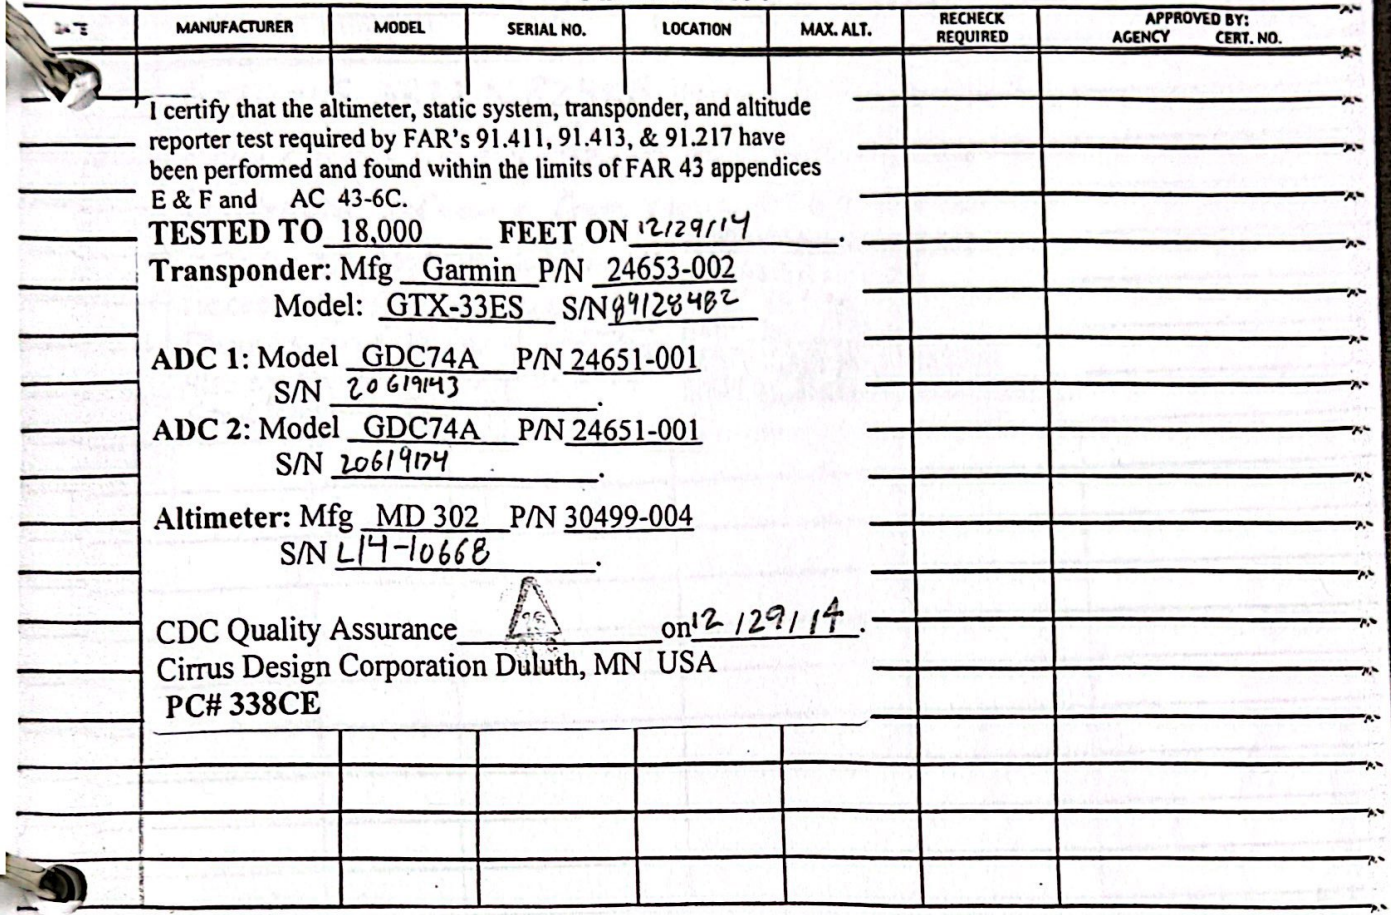 DATE MANUFACTURER MODEL SERIAL NO. LOCATION MAX. ALT. RECHECK REQUIRED APPROVED BY: AGENCY CERT. NO.
I certify that the altimeter, static system, transponder, and altitude
reporter test required by FAR's 91.411, 91.413, & 91.217 have
been performed and found within the limits of FAR 43 appendices
E & F and AC 43-6C.
TESTED TO 18,000 FEET ON 12/29/14.
Transponder: Mfg Garmin P/N 24653-002
Model: GTX-33ES S/N 89128482
ADC 1: Model GDC74A P/N 24651-001
S/N 20619143.
ADC 2: Model GDC74A P/N 24651-001
S/N 20619174.
Altimeter: Mfg MD 302 P/N 30499-004
S/N L14-10668.
CDC Quality Assurance on 12/29/14.
Cirrus Design Corporation Duluth, MN USA
PC# 338CE